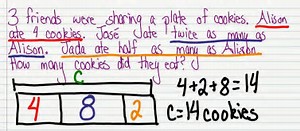 3 friends were sharing a plate of cookies. Alison
ate 4 cookies. Jose ate twice as many as
Alison. Jada ate half as many as Alison.
How many cookies did they eat?
C
4+2+8=14
4 8 2
C=14 cookies